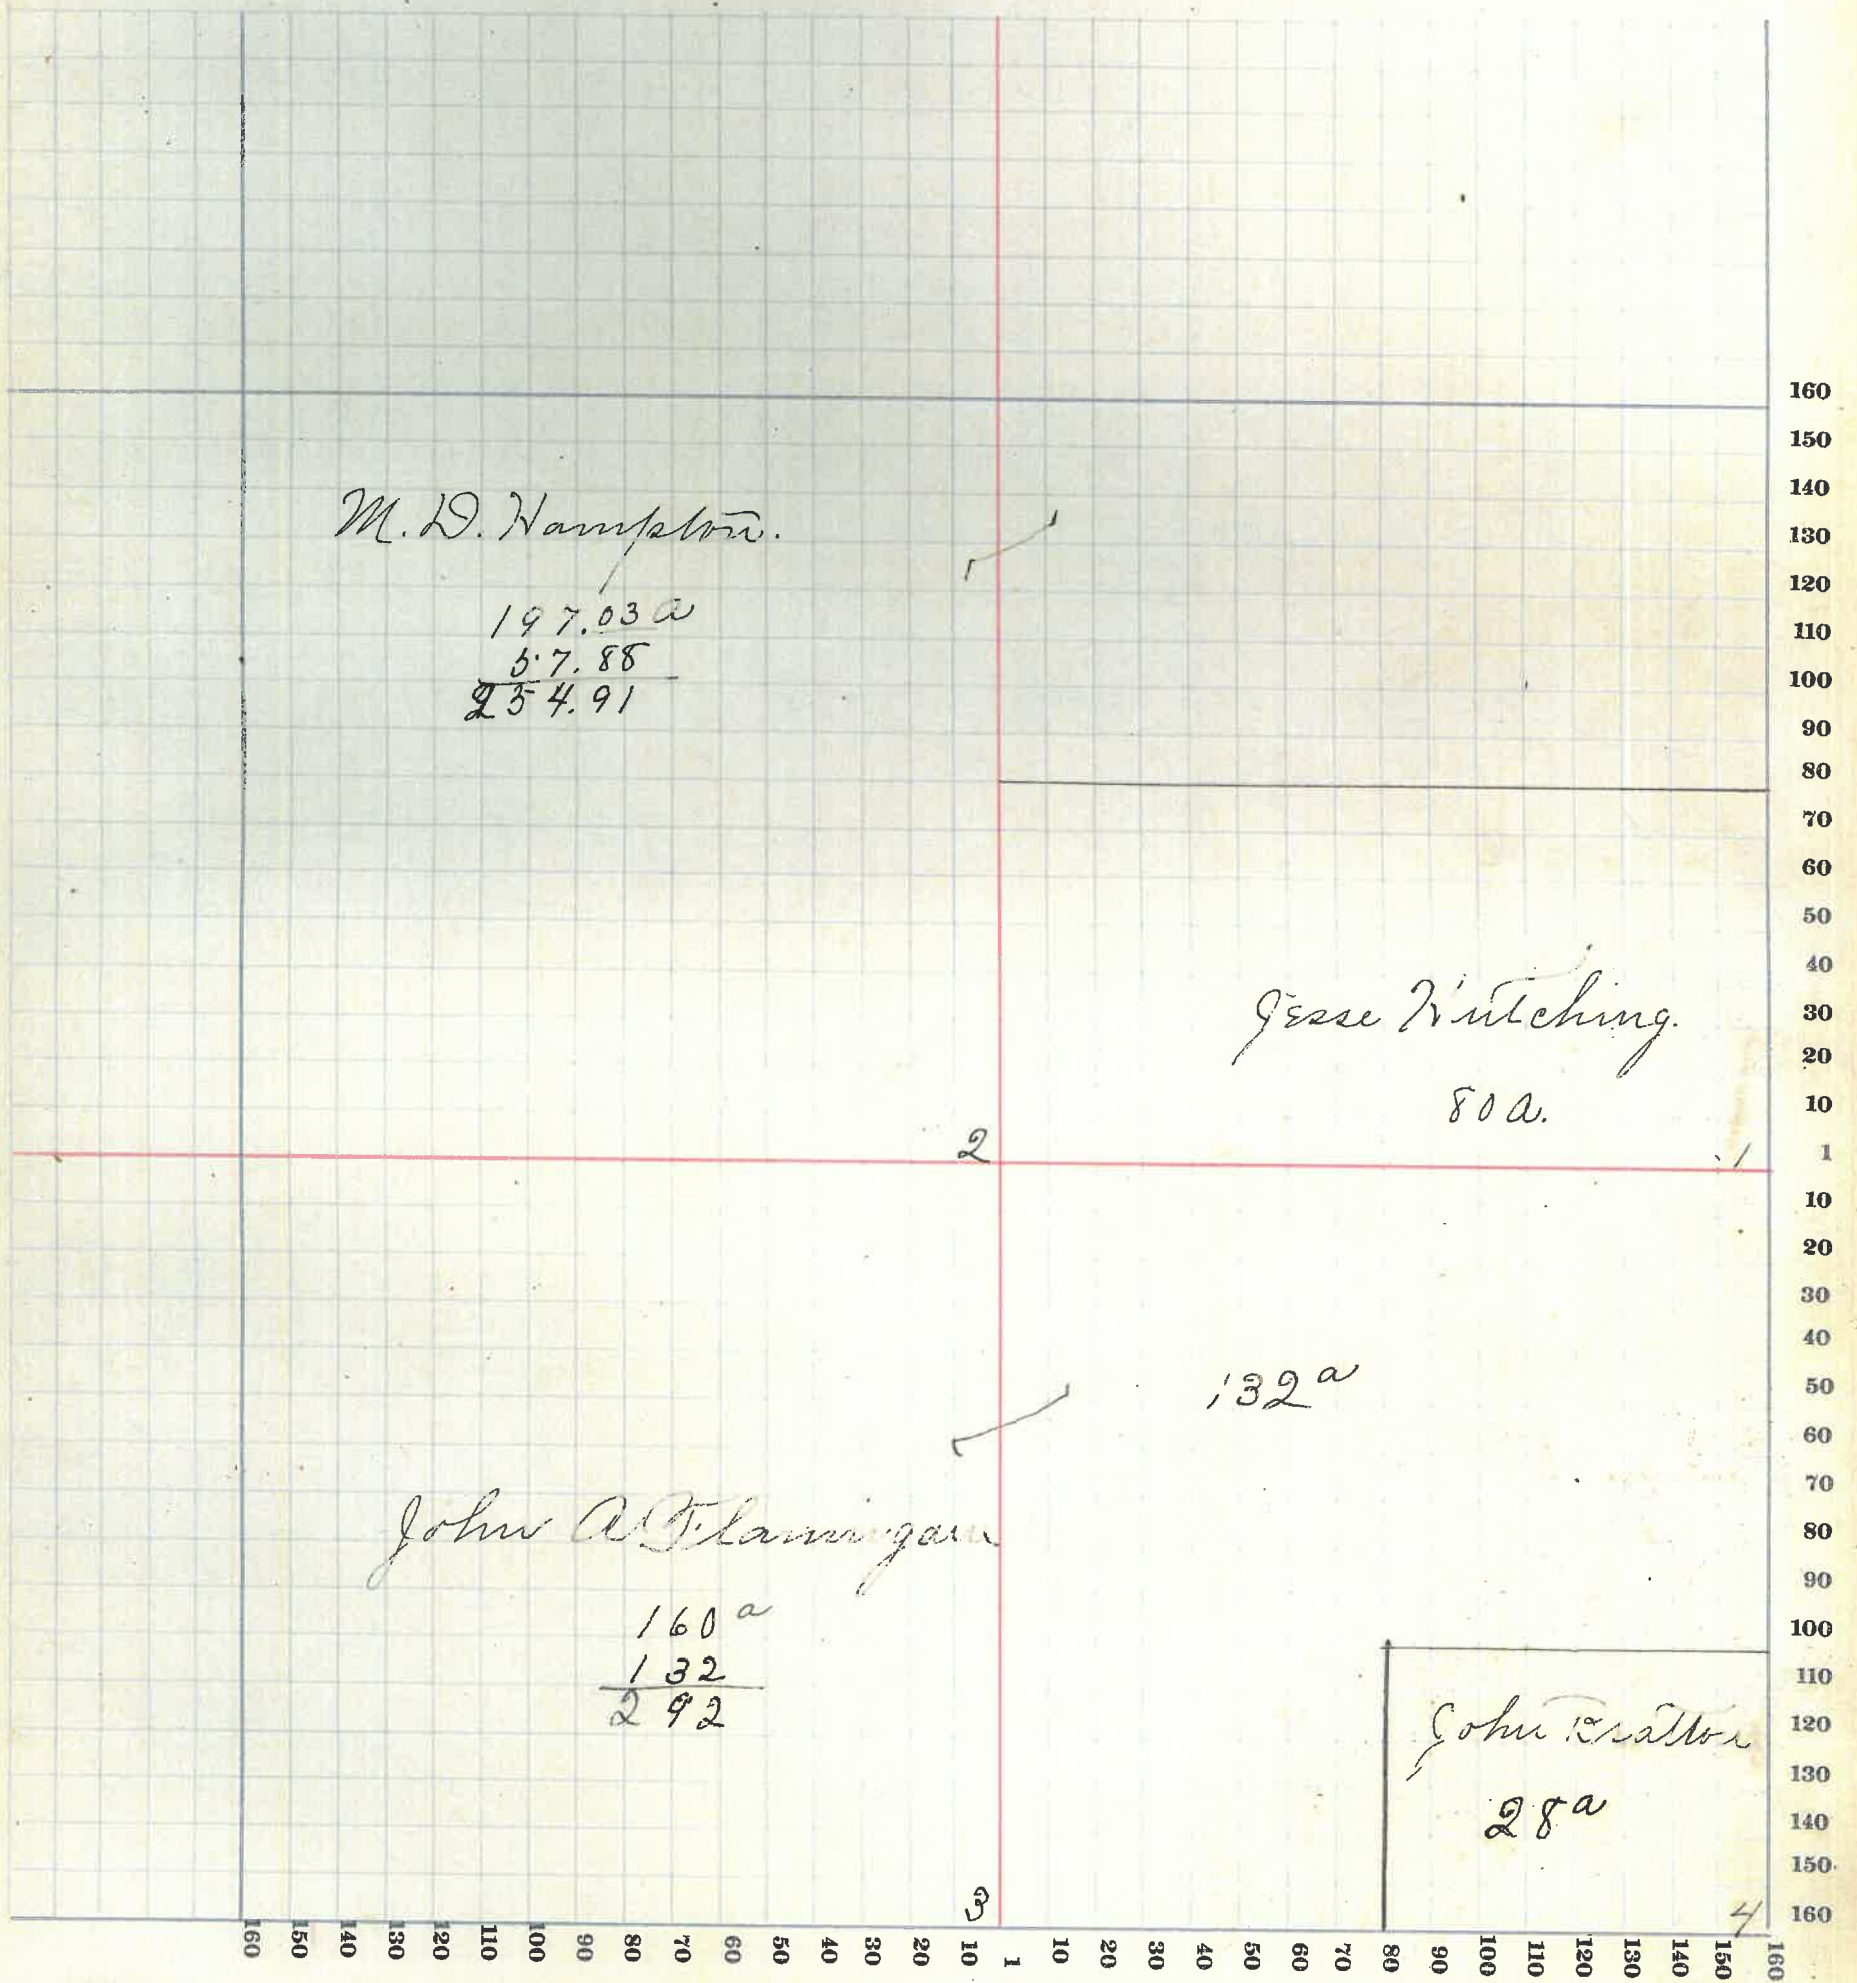 M. D. Hampton.
197.03 a
57.88
254.91
Jesse Hutching.
80 a.
2
1
132 a
John A Flannigan
160 a
132
292
John Bratton
28 a
3
4
160
150
140
130
120
110
100
90
80
70
60
50
40
30
20
10
1
10
20
30
40
50
60
70
80
90
100
110
120
130
140
150
160
160 150 140 130 120 110 100 90 80 70 60 50 40 30 20 10 1 10 20 30 40 50 60 70 80 90 100 110 120 130 140 150 160